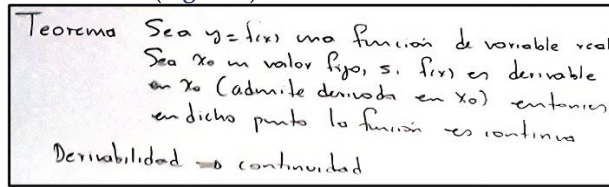 Teorema Sea y = f(x) una función de variable real
Sea x₀ un valor fijo, si f(x) es derivable
en x₀ (admite derivada en x₀) entonces
en dicho punto la función es continua
Derivabilidad → continuidad